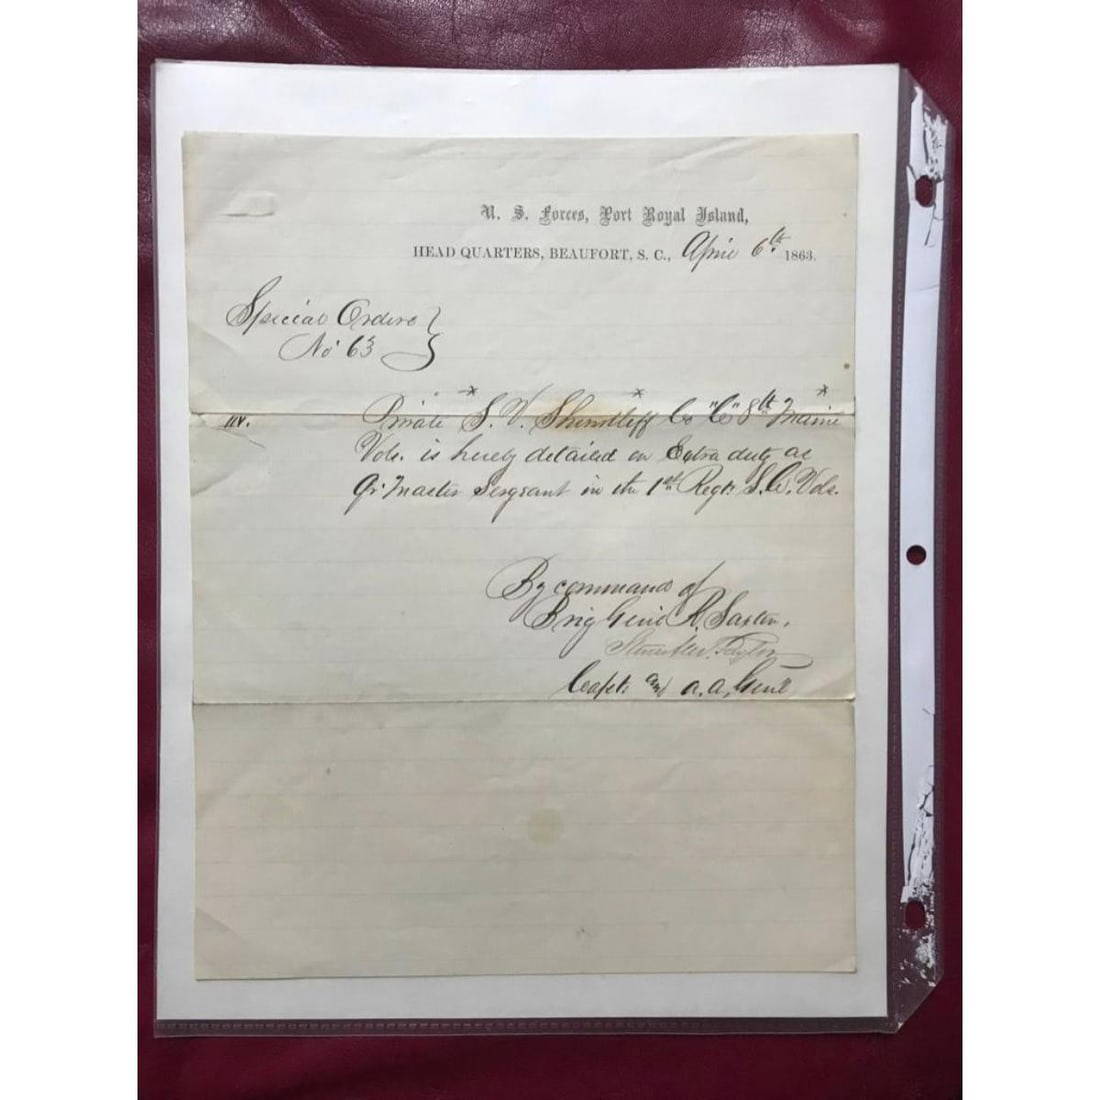 U. S. Forces, Port Royal Island,
HEAD QUARTERS, BEAUFORT, S. C., April 6th 1863.
Special Orders }
No 63 }
IV. Private S. V. Shurtleff Co "C" 8th Maine
Vols. is hereby detailed on Extra duty as
Qr Master Sergeant in the 1st Regt. S. C. Vols.
By command of
Brig Genl R. Saxton.
Capt. and A. A. Genl